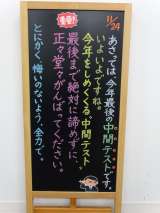 重要!
11/24
あさっては、今年最後の中間テストです。
いよいよですね。
今年をしめくくる。中間テスト
最後まで絶対に諦めずに、
正々堂々がんばってください。
とにかく、悔いのないよう、全力で。